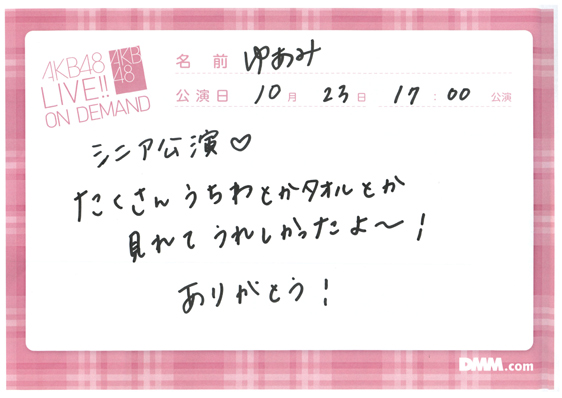 AKB48
LIVE!!
ON DEMAND
AKB
48
名前 ゆあみ
公演日 10月 23日 17:00 公演
シニア公演♡
たくさんうちわとかタオルとか
見れてうれしかったよ〜!
ありがとう!
DMM.com